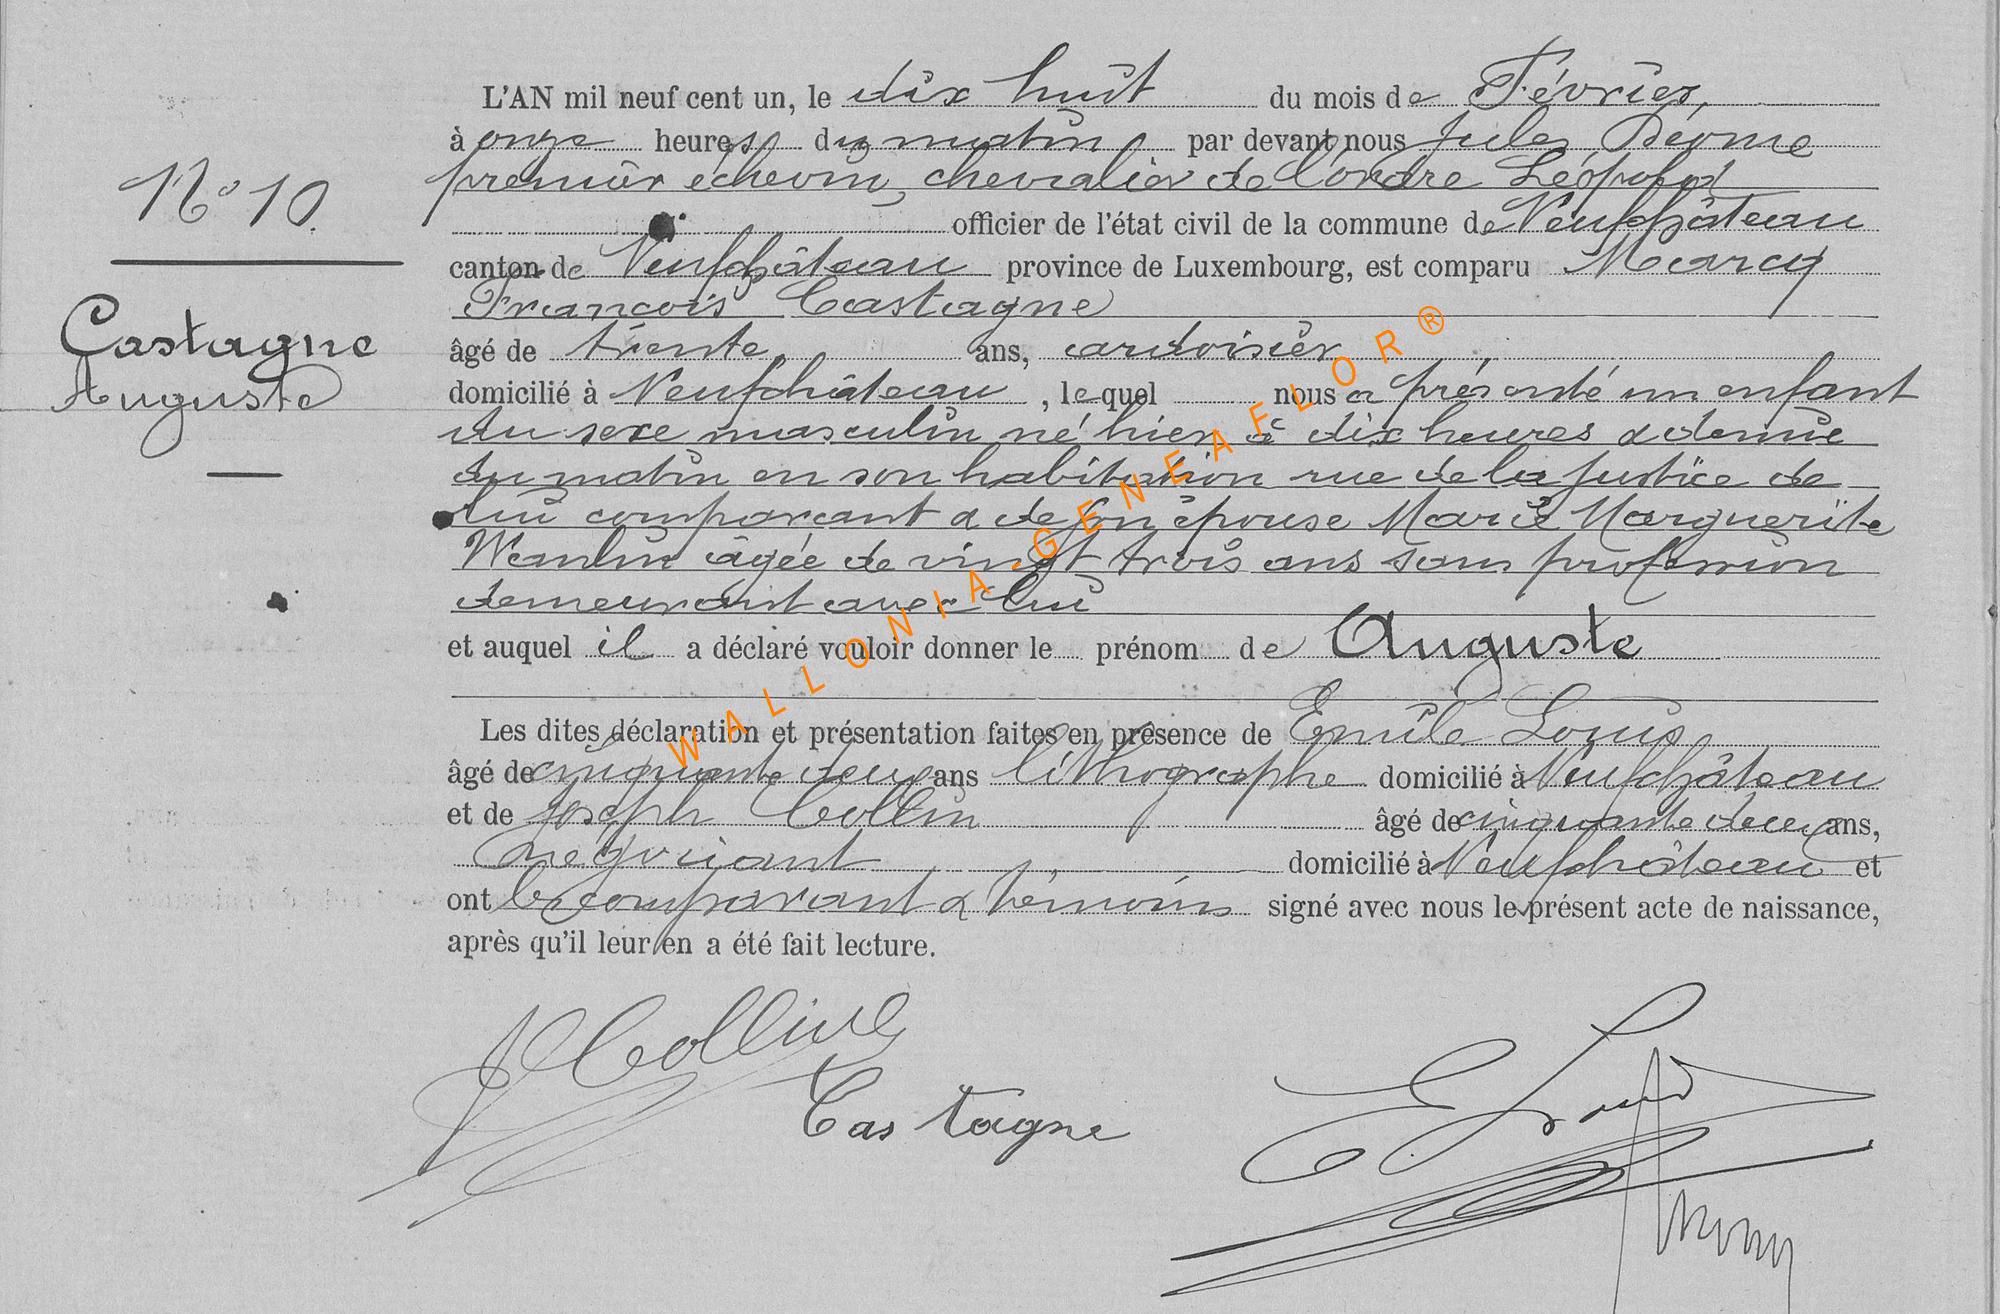 L'AN mil neuf cent un, le dix huit du mois de Février,
à onze heures du matin par devant nous Jules
premier échevin, chevalier de l'ordre Léopold
N° 10.
officier de l'état civil de la commune de Neufchâteau
canton de Neufchâteau province de Luxembourg, est comparu Marcy
François Castagne
Castagne
Auguste
âgé de trente ans, ardoisier
domicilié à Neufchâteau, lequel nous a présenté un enfant
du sexe masculin né hier à dix heures & demie
du matin en son habitation rue de la Justice de
lui comparant & de son épouse Marie Marguerite
âgée de vingt trois ans sans profession
demeurant avec lui
et auquel il a déclaré vouloir donner le prénom de Auguste
Les dites déclaration et présentation faites en présence de Emile Louis
âgé de cinquante deux ans lithographe domicilié à Neufchâteau
et de Joseph Collin âgé de cinquante deux ans,
négociant domicilié à Neufchâteau et
ont le comparant & témoins signé avec nous le présent acte de naissance,
après qu'il leur en a été fait lecture.
J Collin
Castagne
E Louis
WALLONIA-GENEAFLOR®